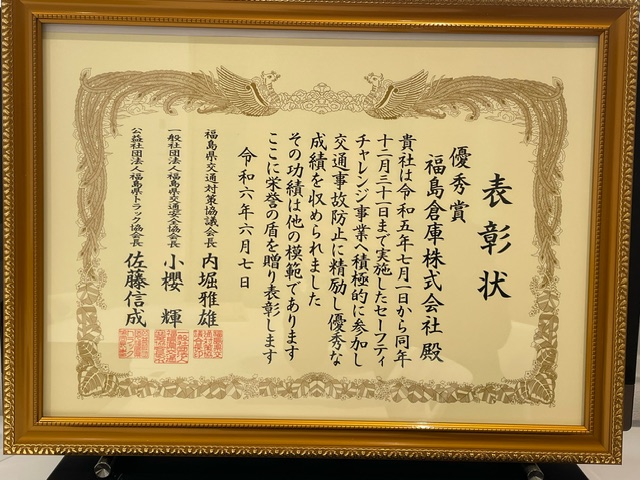 表彰状
優秀賞
福島倉庫株式会社 殿
貴社は令和五年七月一日から同年
十二月三十一日まで実施したセーフティ
チャレンジ事業へ積極的に参加し
交通事故防止に精励し優秀な
成績を収められました
その功績は他の模範であります
ここに栄誉の盾を贈り表彰します
令和六年六月七日
福島県交通対策協議会長 内堀雅雄
一般社団法人福島県交通安全協会長 小櫻輝
公益社団法人福島県トラック協会長 佐藤信成